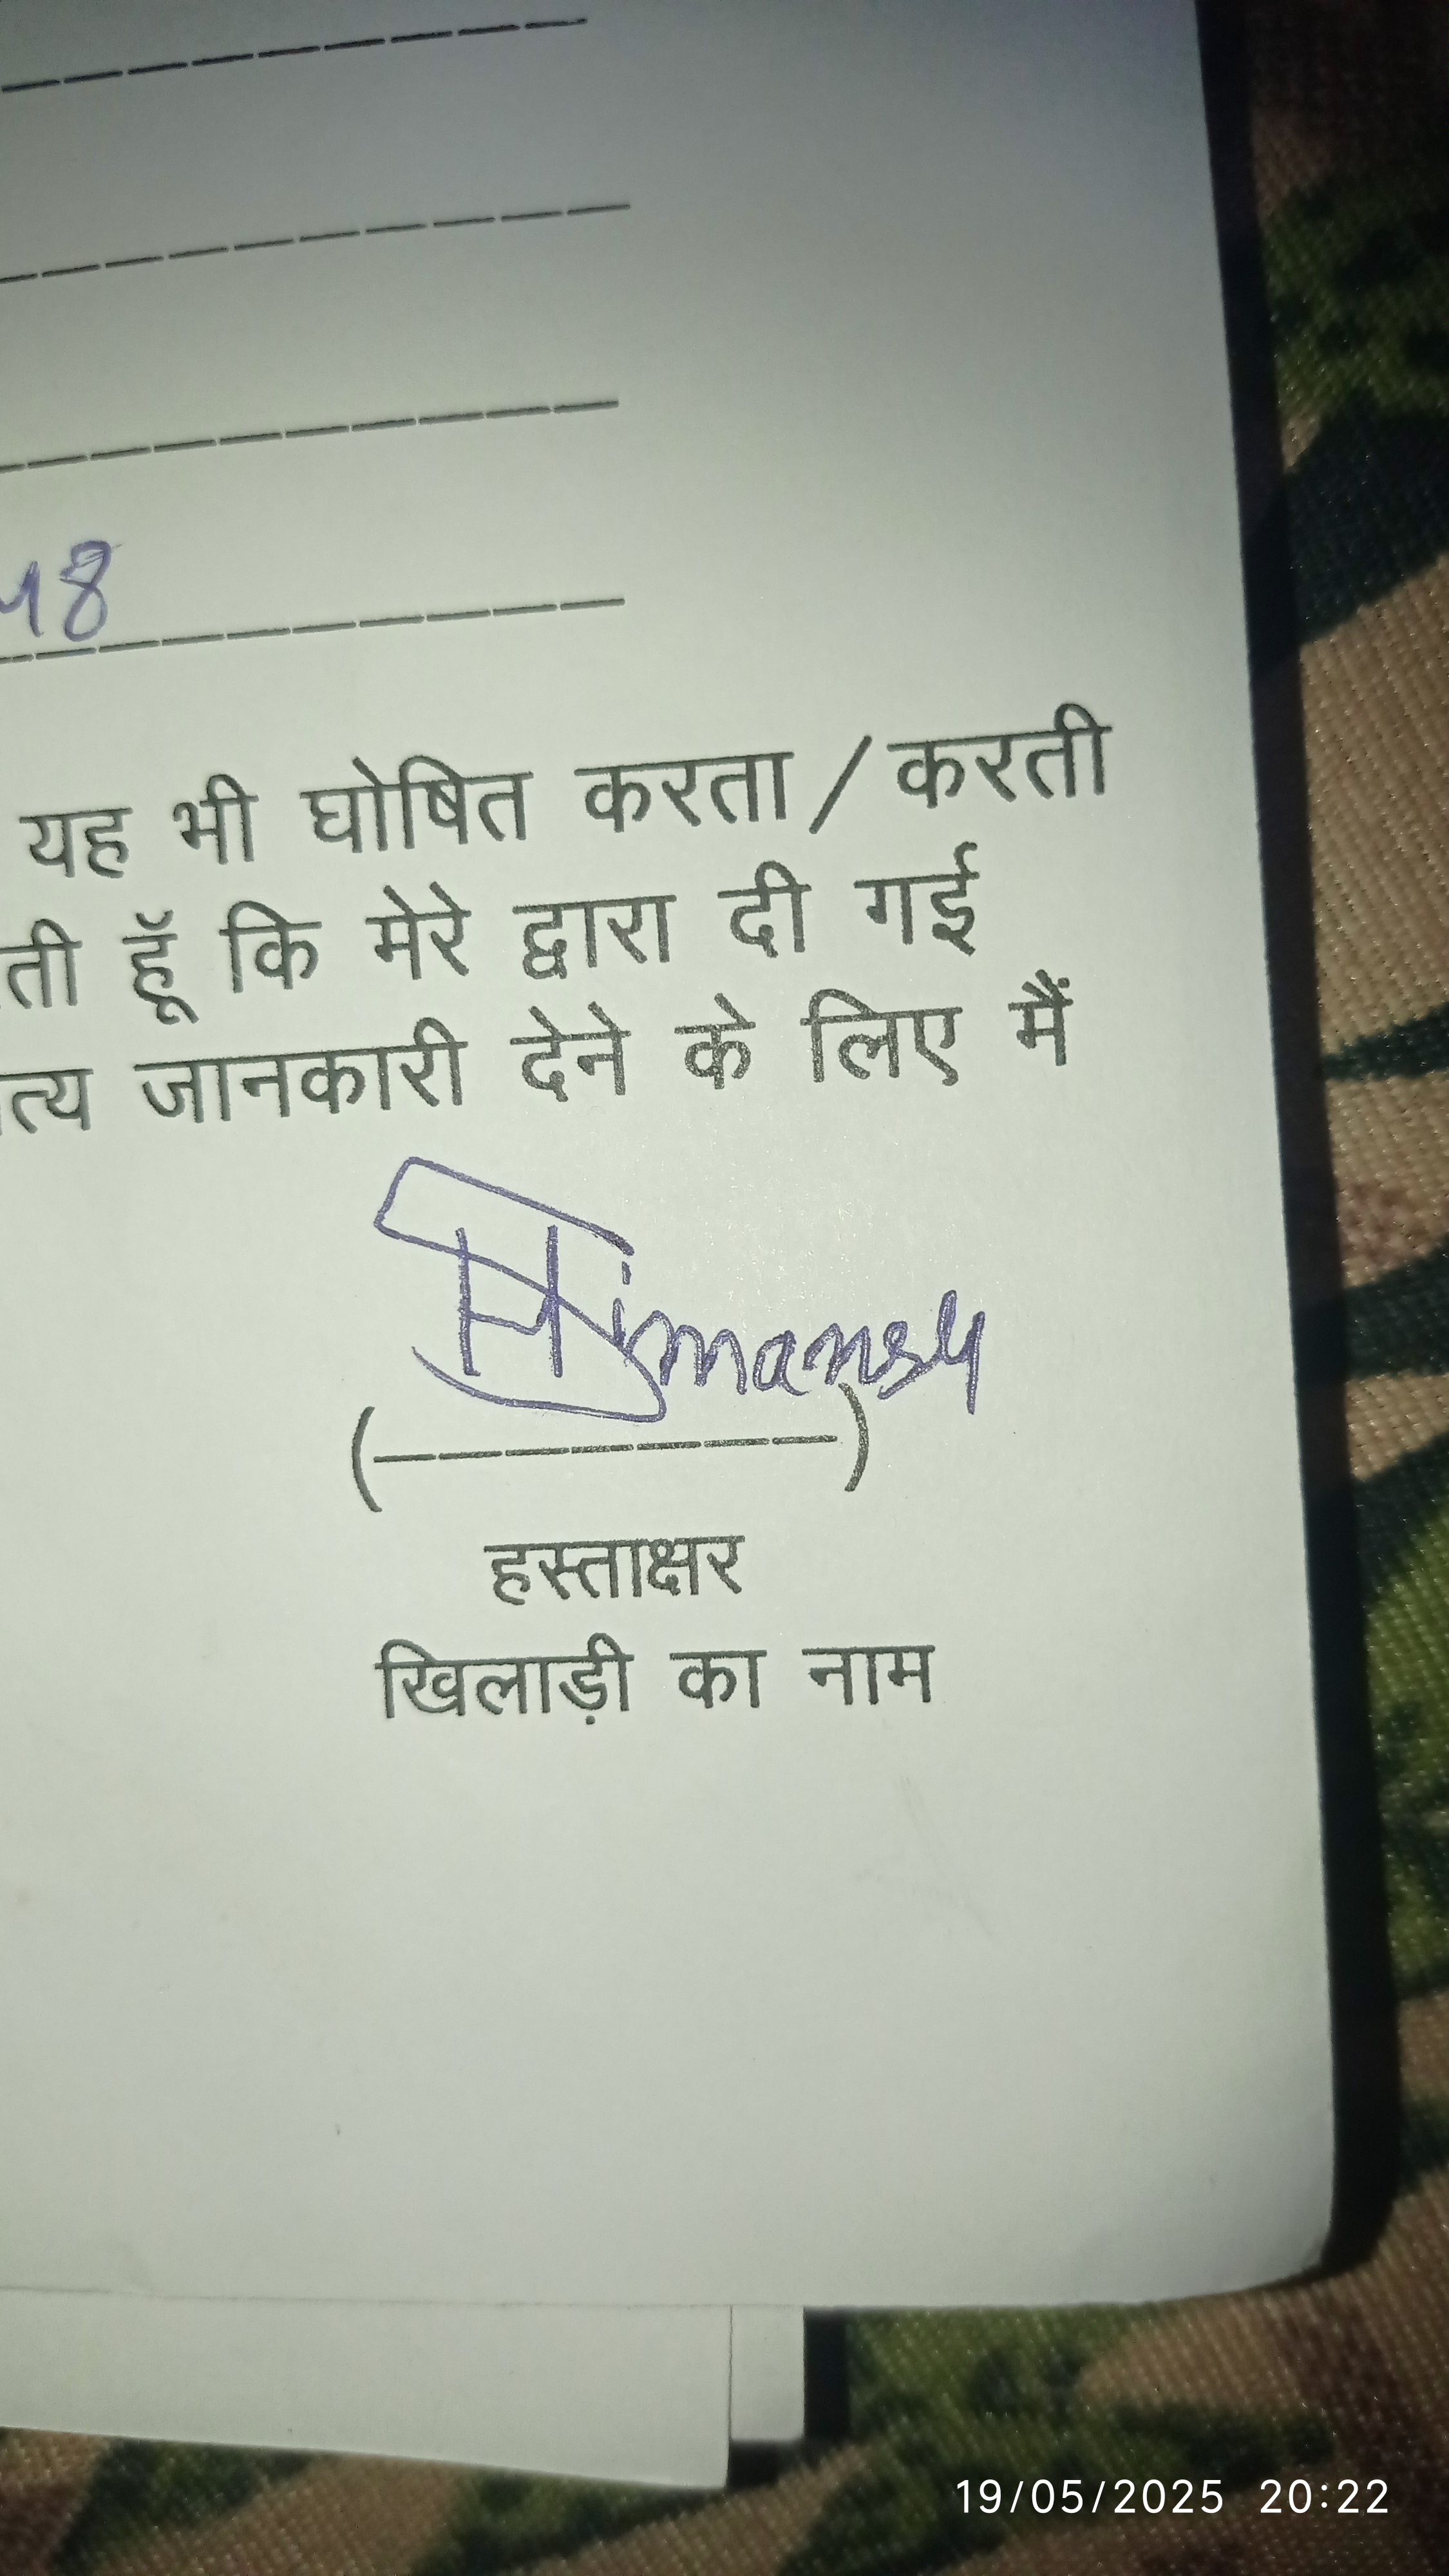 48
यह भी घोषित करता/करती
ती हूॅं कि मेरे द्वारा दी गई
त्य जानकारी देने के लिए मैं
Himansy
(--------)
हस्ताक्षर
खिलाड़ी का नाम
19/05/2025 20:22